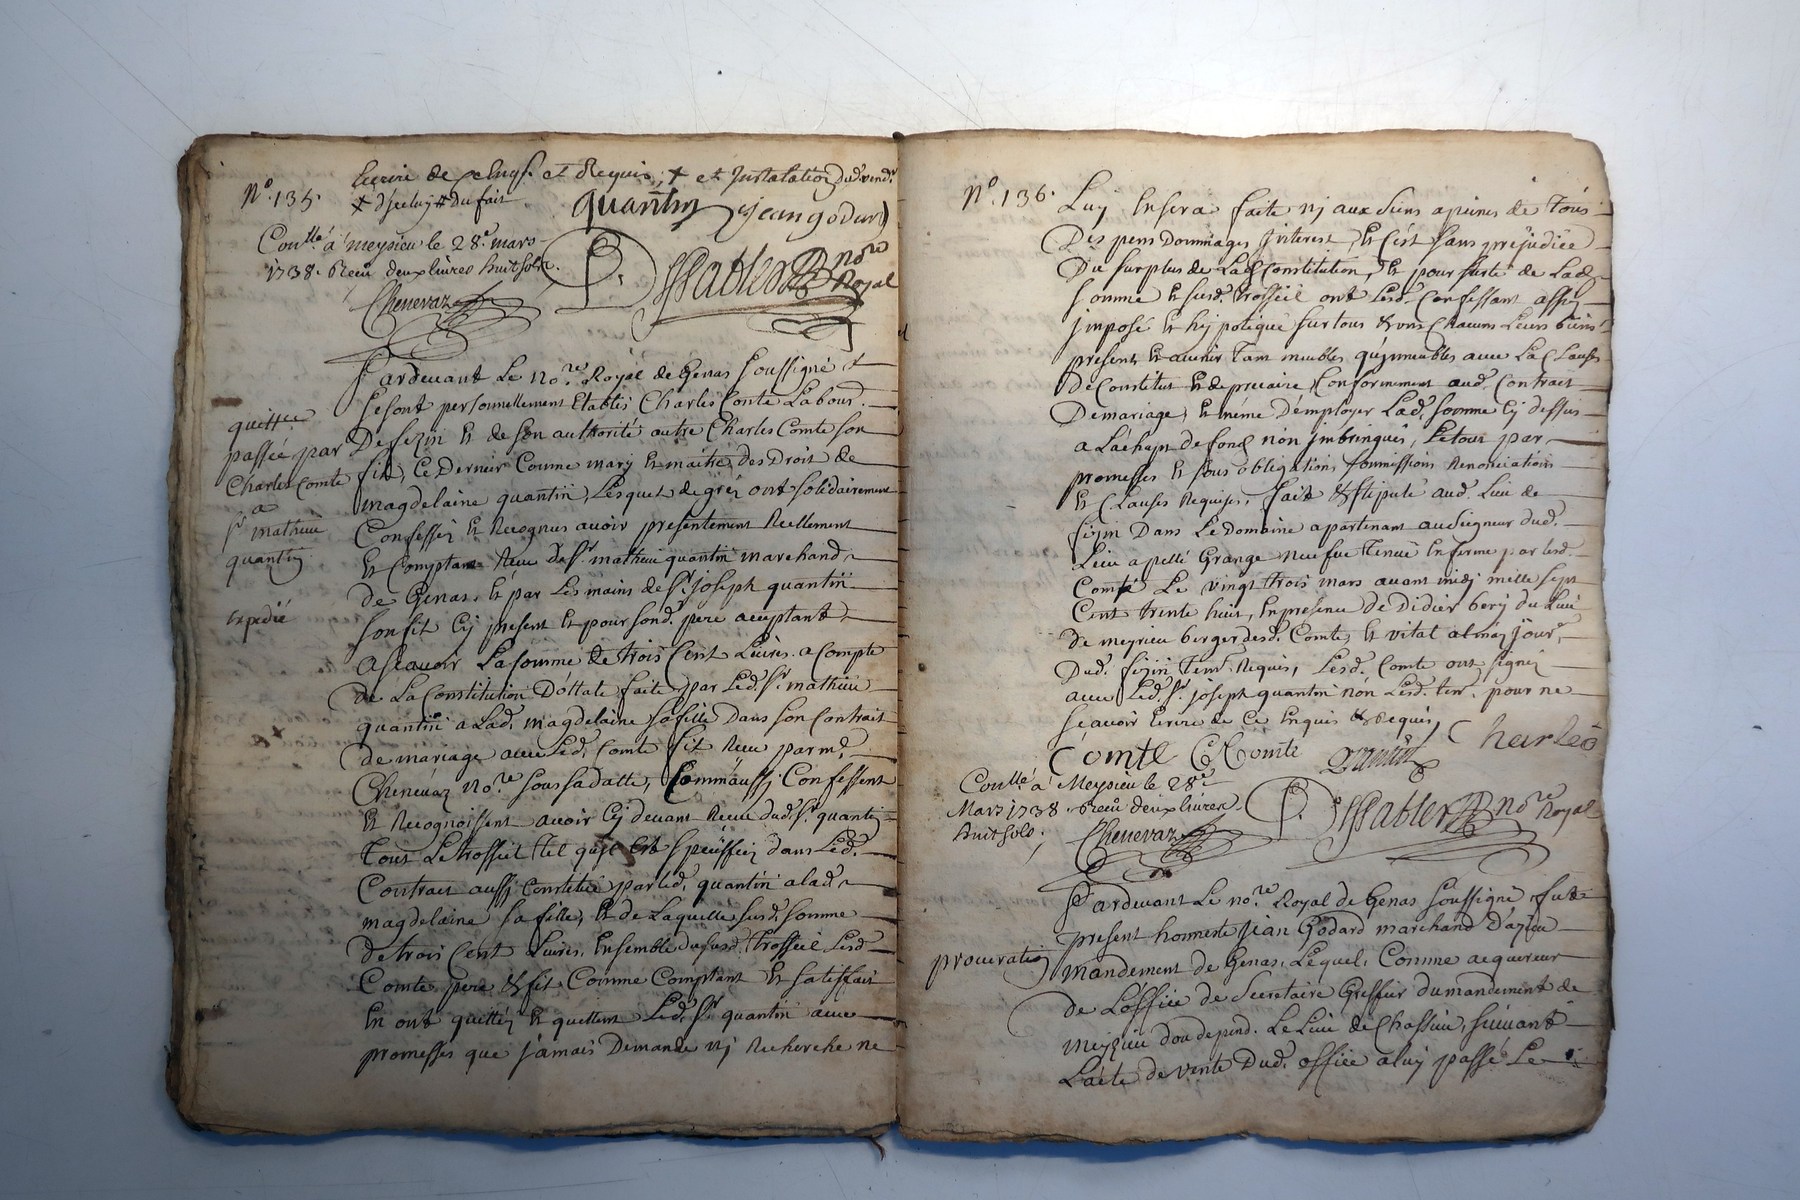 N.º 135.
Ecrire de ce Enqs. et Requis, + et Instalation dud. vend.r
+ d'jceluy # du fait
quantin jean godard
Conllé a meysieu le 28e. mars
1738. Receu deux livres huit sols.
P. Dissablea no.re Royal
Chenevaz
Pardevant Le no.re Royal de Genas soussigné
se sont personnellement Etablis Charles Conte Labour.
De fezin et de son authorité autre Charles Comte son
fils, Ce Dernier Comme mary et maitre des Droit de
magdelaine quantin, Lesquel de gréz ont solidairement
Confesséz et Recognus avoir presentement Reellement
et Comptant Receu de Sr. mathieu quantin marchand
de Genas, et par Les mains de Sr. joseph quantin
son fils Cy present et pour sond. pere acceptant
Ascavoir La somme de trois Cent Livres a Compte
de La Constitution Dottale faite par Led. Sr. mathieu
quantin a Lad. magdelaine sa fille Dans son Contrait
de mariage avec Led. Comte fils Receu par me.
Chenevaz no.re sous sa datte, Comm'aussi Confessent
et Recognoissent avoir Cy devant Receu dud. Sr. quantin
Tout Le trosseil tel qu'jl est speciffiez dans Led.
Contract aussi Constitué par led. quantin a lad.
magdelaine sa fille, et de Laquelle susd. somme
De trois Cent Livres, Ensemble du susd. trosseil Lesd.
Comte, pere & fils Comme Comptant et satisfait
En ont quittéz et quittent Led. Sr. quantin avec
promesses que jamais Demande nj Recherche ne
quittce
passée par
Charles Comte
a
Sr. mathieu
quantin
Expedié
N.º 136.
Luy En sera faite nj aux siens a peines de Tous
Des pens Dommages Jnterest, et C'est sans prejudice
Du surplus de Lad. Constitution, et pour surté de Lad.
somme et susd. trosseil ont Lesd. Confessant assis
jmposé et hypotequé sur tous & uns Chacuns Leurs biens
present et avenir tam meubles qu'jmmeubles avec La Clauses
De Constitut et de precaire, Conformement aud. Contract
De mariage, et méme D'employer Lad. somme Cy dessus
a L'achapt de fond non jmbringués, Le tour par
promesses et sous obligations soumissions Renonciations
et Clauses Requises, fait & stipulé aud. Lieu de
fezin Dans Le Domaine apartenant au Seigneur dud.
Lieu apellé Grange neufve Tenue En ferme par lesd.
Comte Le vingt trois mars avant midj mille sept
Cent trente huit, En presence de Didier bery du Lieu
de meyrieu berger desd. Comte, et vital almaz jour.r
Dud. fezin tem. Requis, Lesd. Comte ont signéz
avec Led. Sr. joseph quantin non Lesd. tem. pour ne
scavoir Ecrire de Ce Enquis & Requis, Charles
Comte C Comte Quantin
Conllé a Meysieu le 28e.
Mars 1738. Receu deux livres
huit sols.
P. Dissablea no.re Royal
Chenevaz
Pardevant Le no.re Royal de Genas soussigné, fut
present honneste jean Godard marchand D'azieu
mandement de Genas, Lequel, Comme acquereur
de L'office de Secretaire Greffier du mandement de
meyzieu dou depend. Le Lieu de Chassieu, suivant
L'acte de vente Dud. office a luy passé Le
procuration